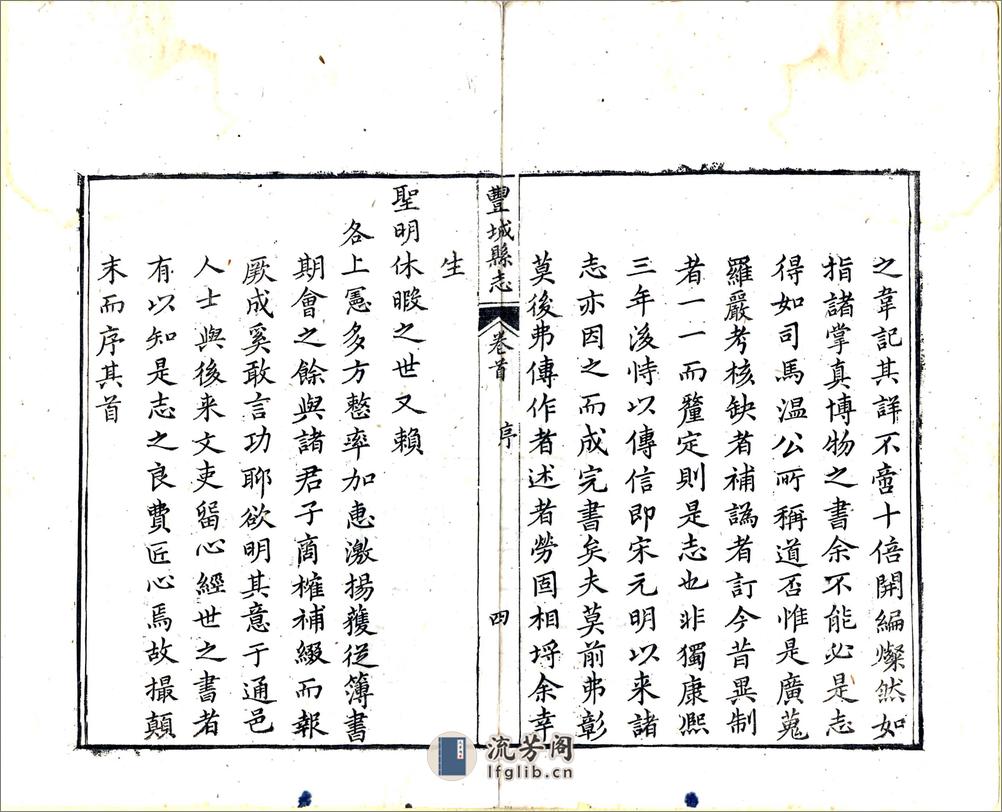 之韋記其詳不啻十倍開編燦然如
指諸掌真博物之書余不能必是志
得如司馬温公所稱道否惟是廣蒐
羅嚴考核缺者補譌者訂今昔異制
者一一而釐定則是志也非獨康熙
三年後恃以傳信即宋元明以來諸
志亦因之而成完書矣夫莫前弗彰
莫後弗傳作者述者勞固相埒余幸
豐城縣志 卷首 序 四
生
聖明休暇之世又賴
各上憲多方整率加惠激揚獲從簿書
期會之餘與諸君子商榷補綴而報
厥成奚敢言功耶欲明其意于通邑
人士與後来文吏留心經世之書者
有以知是志之良費匠心焉故撮顛
末而序其首
流芳阁
lfglib.cn